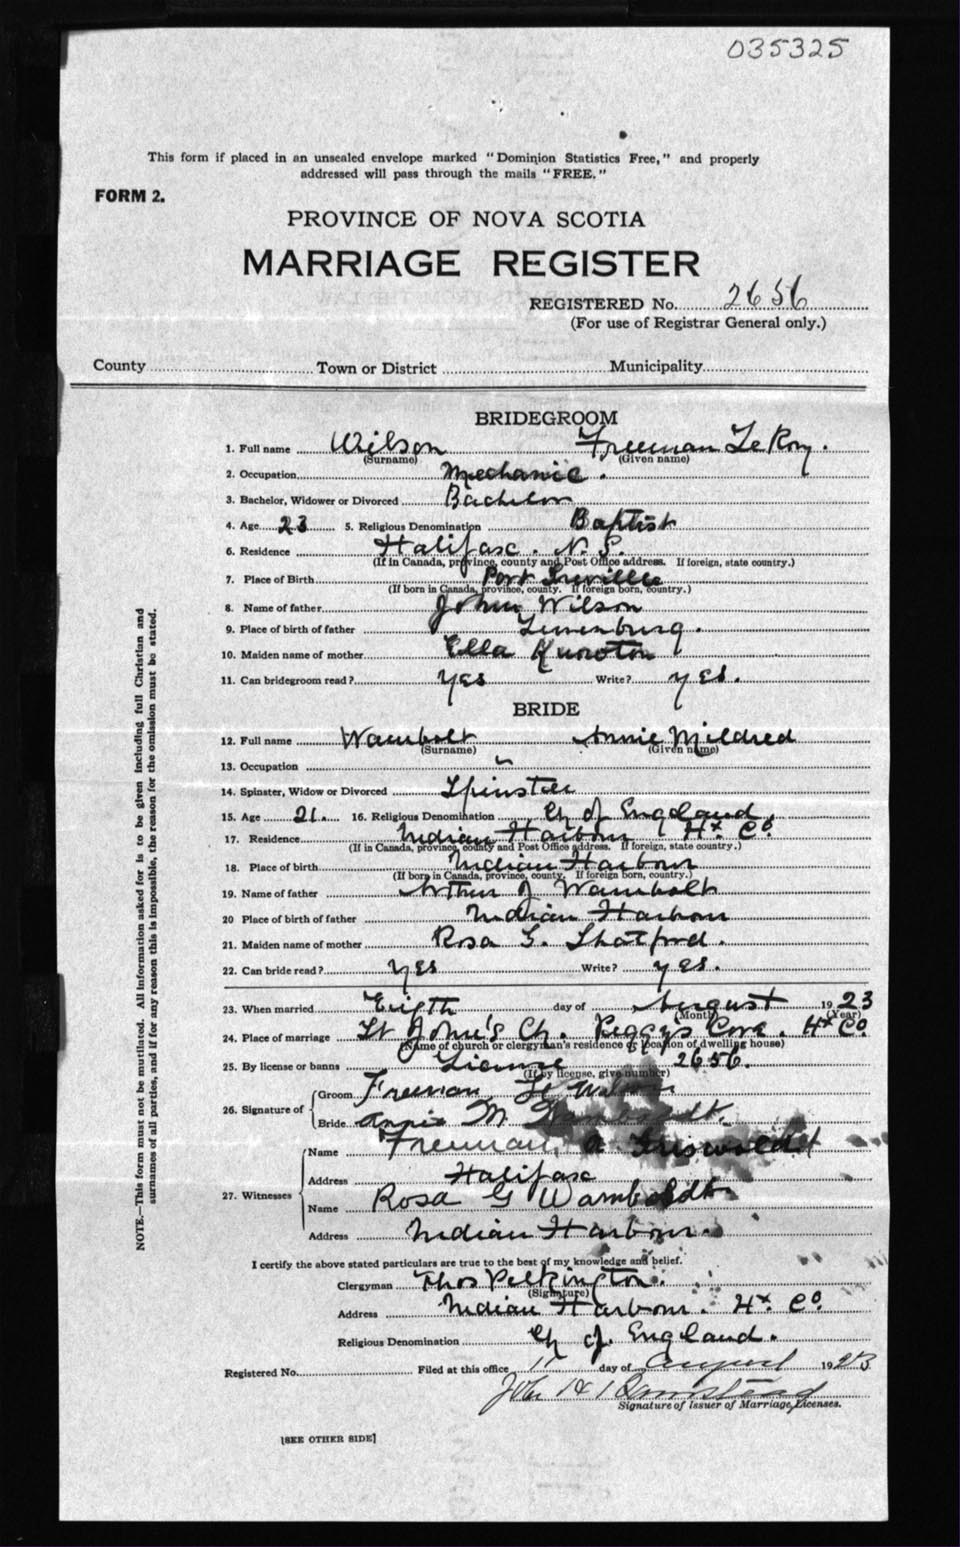 035325
This form if placed in an unsealed envelope marked "Dominion Statistics Free," and properly
addressed will pass through the mails "FREE."
FORM 2.
PROVINCE OF NOVA SCOTIA
MARRIAGE REGISTER
REGISTERED No. 2656
(For use of Registrar General only.)
County Town or District Municipality
BRIDEGROOM
1. Full name Wilson Freeman LeRoy.
(Surname) (Given name)
2. Occupation Mechanic.
3. Bachelor, Widower or Divorced Bachelor
4. Age 23 5. Religious Denomination Baptist
6. Residence Halifax. N. S.
(If in Canada, province, county and Post Office address. If foreign, state country.)
7. Place of Birth Port
(If born in Canada, province, county. If foreign born, country.)
8. Name of father John Wilson
9. Place of birth of father Lunenburg.
10. Maiden name of mother Ella
11. Can bridegroom read? yes Write? yes.
BRIDE
12. Full name Wambolt Annie Mildred
(Surname) (Given name)
13. Occupation
14. Spinster, Widow or Divorced Spinster
15. Age 21. 16. Religious Denomination Ch of England.
17. Residence Indian Harbour Hx Co.
(If in Canada, province, county and Post Office address. If foreign, state country.)
18. Place of birth Indian Harbour
(If born in Canada, province, county. If foreign born, country.)
19. Name of father Arthur J Wambolt
20 Place of birth of father Indian Harbour
21. Maiden name of mother Rosa G. Shatford.
22. Can bride read? yes Write? yes.
23. When married Eigth day of August 1923
(Month) (Year)
24. Place of marriage St John's Ch. Peggys Cove. Hx Co.
(Name of church or clergyman's residence or location of dwelling house)
25. By license or banns License 2656.
(If by license, give number)
26. Signature of Groom Freeman Le Wilson
Bride Annie M Wamboldt.
27. Witnesses Name Freeman A Griswold
Address Halifax
Name Rosa G Wamboldt
Address Indian Harbour.
I certify the above stated particulars are true to the best of my knowledge and belief.
Clergyman Thos Pilkington.
(Signature)
Address Indian Harbour. Hx. Co.
Religious Denomination Ch of. England.
Registered No. Filed at this office 11 day of August 1923
John H
Signature of Issuer of Marriage Licenses.
[SEE OTHER SIDE]
NOTE.—This form must not be mutilated. All information asked for is to be given including full Christian and
surnames of all parties, and if for any reason this is impossible, the reason for the omission must be stated.